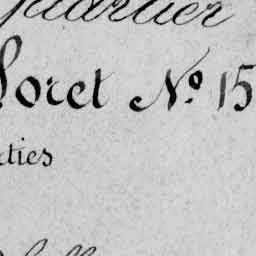 Quartier
Loret Nº 15
rties